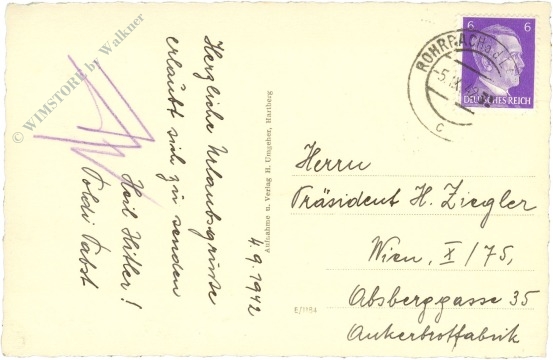 © WIMSTORE by Walkner
Herzliche Urlaubsgrüße
erlaubt sich zu senden
Heil Hitler!
Poldi Pabst
4.9.1942
Aufnahme u. Verlag H. Umgeher, Hartberg
6 6
DEUTSCHES REICH
ROHRBACH
-5.IX.
c
Herrn
Präsident H. Ziegler
Wien, X/75,
Absberggasse 35
Ankerbrotfabrik
E/1154